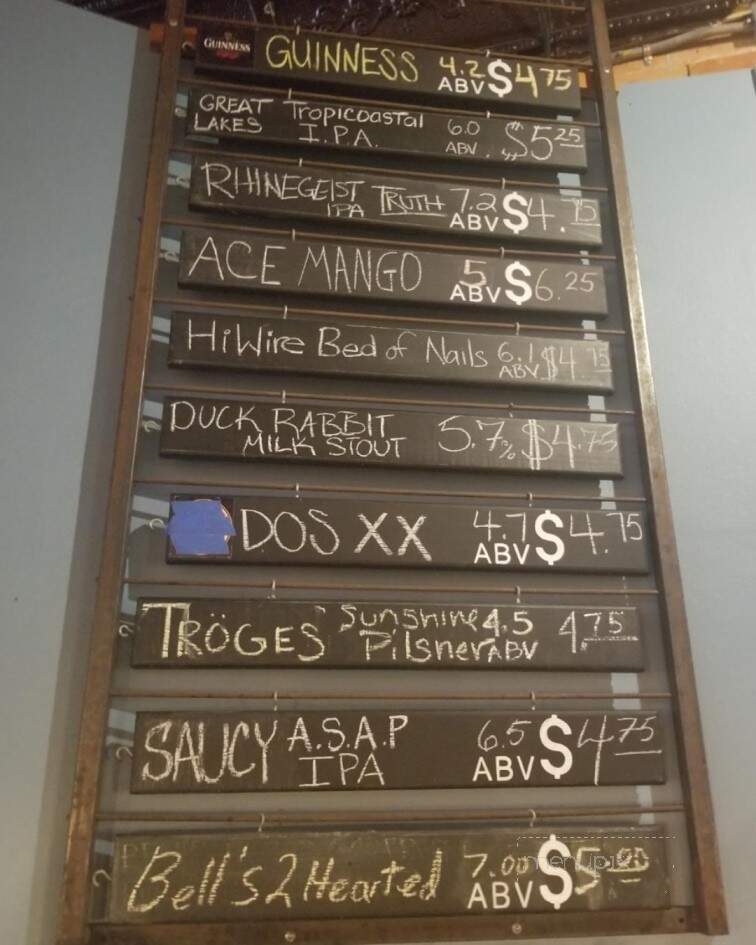 GUINNESS
GUINNESS 4.2 ABV $4.75
GREAT LAKES Tropicoastal I.P.A. 6.0 ABV. $5.25
RHINEGEIST TRUTH IPA 7.2 ABV $4.75
ACE MANGO 5 ABV $6.25
HiWire Bed of Nails 6.1 ABV $4.75
DUCK RABBIT MILK STOUT 5.7% $4.75
DOS XX 4.7 ABV $4.75
TRÖGES Sunshine Pilsner 4.5 ABV 4.75
SAUCY A.S.A.P IPA 6.5 ABV $4.75
Bell's 2 Hearted 7.00 ABV $5.00